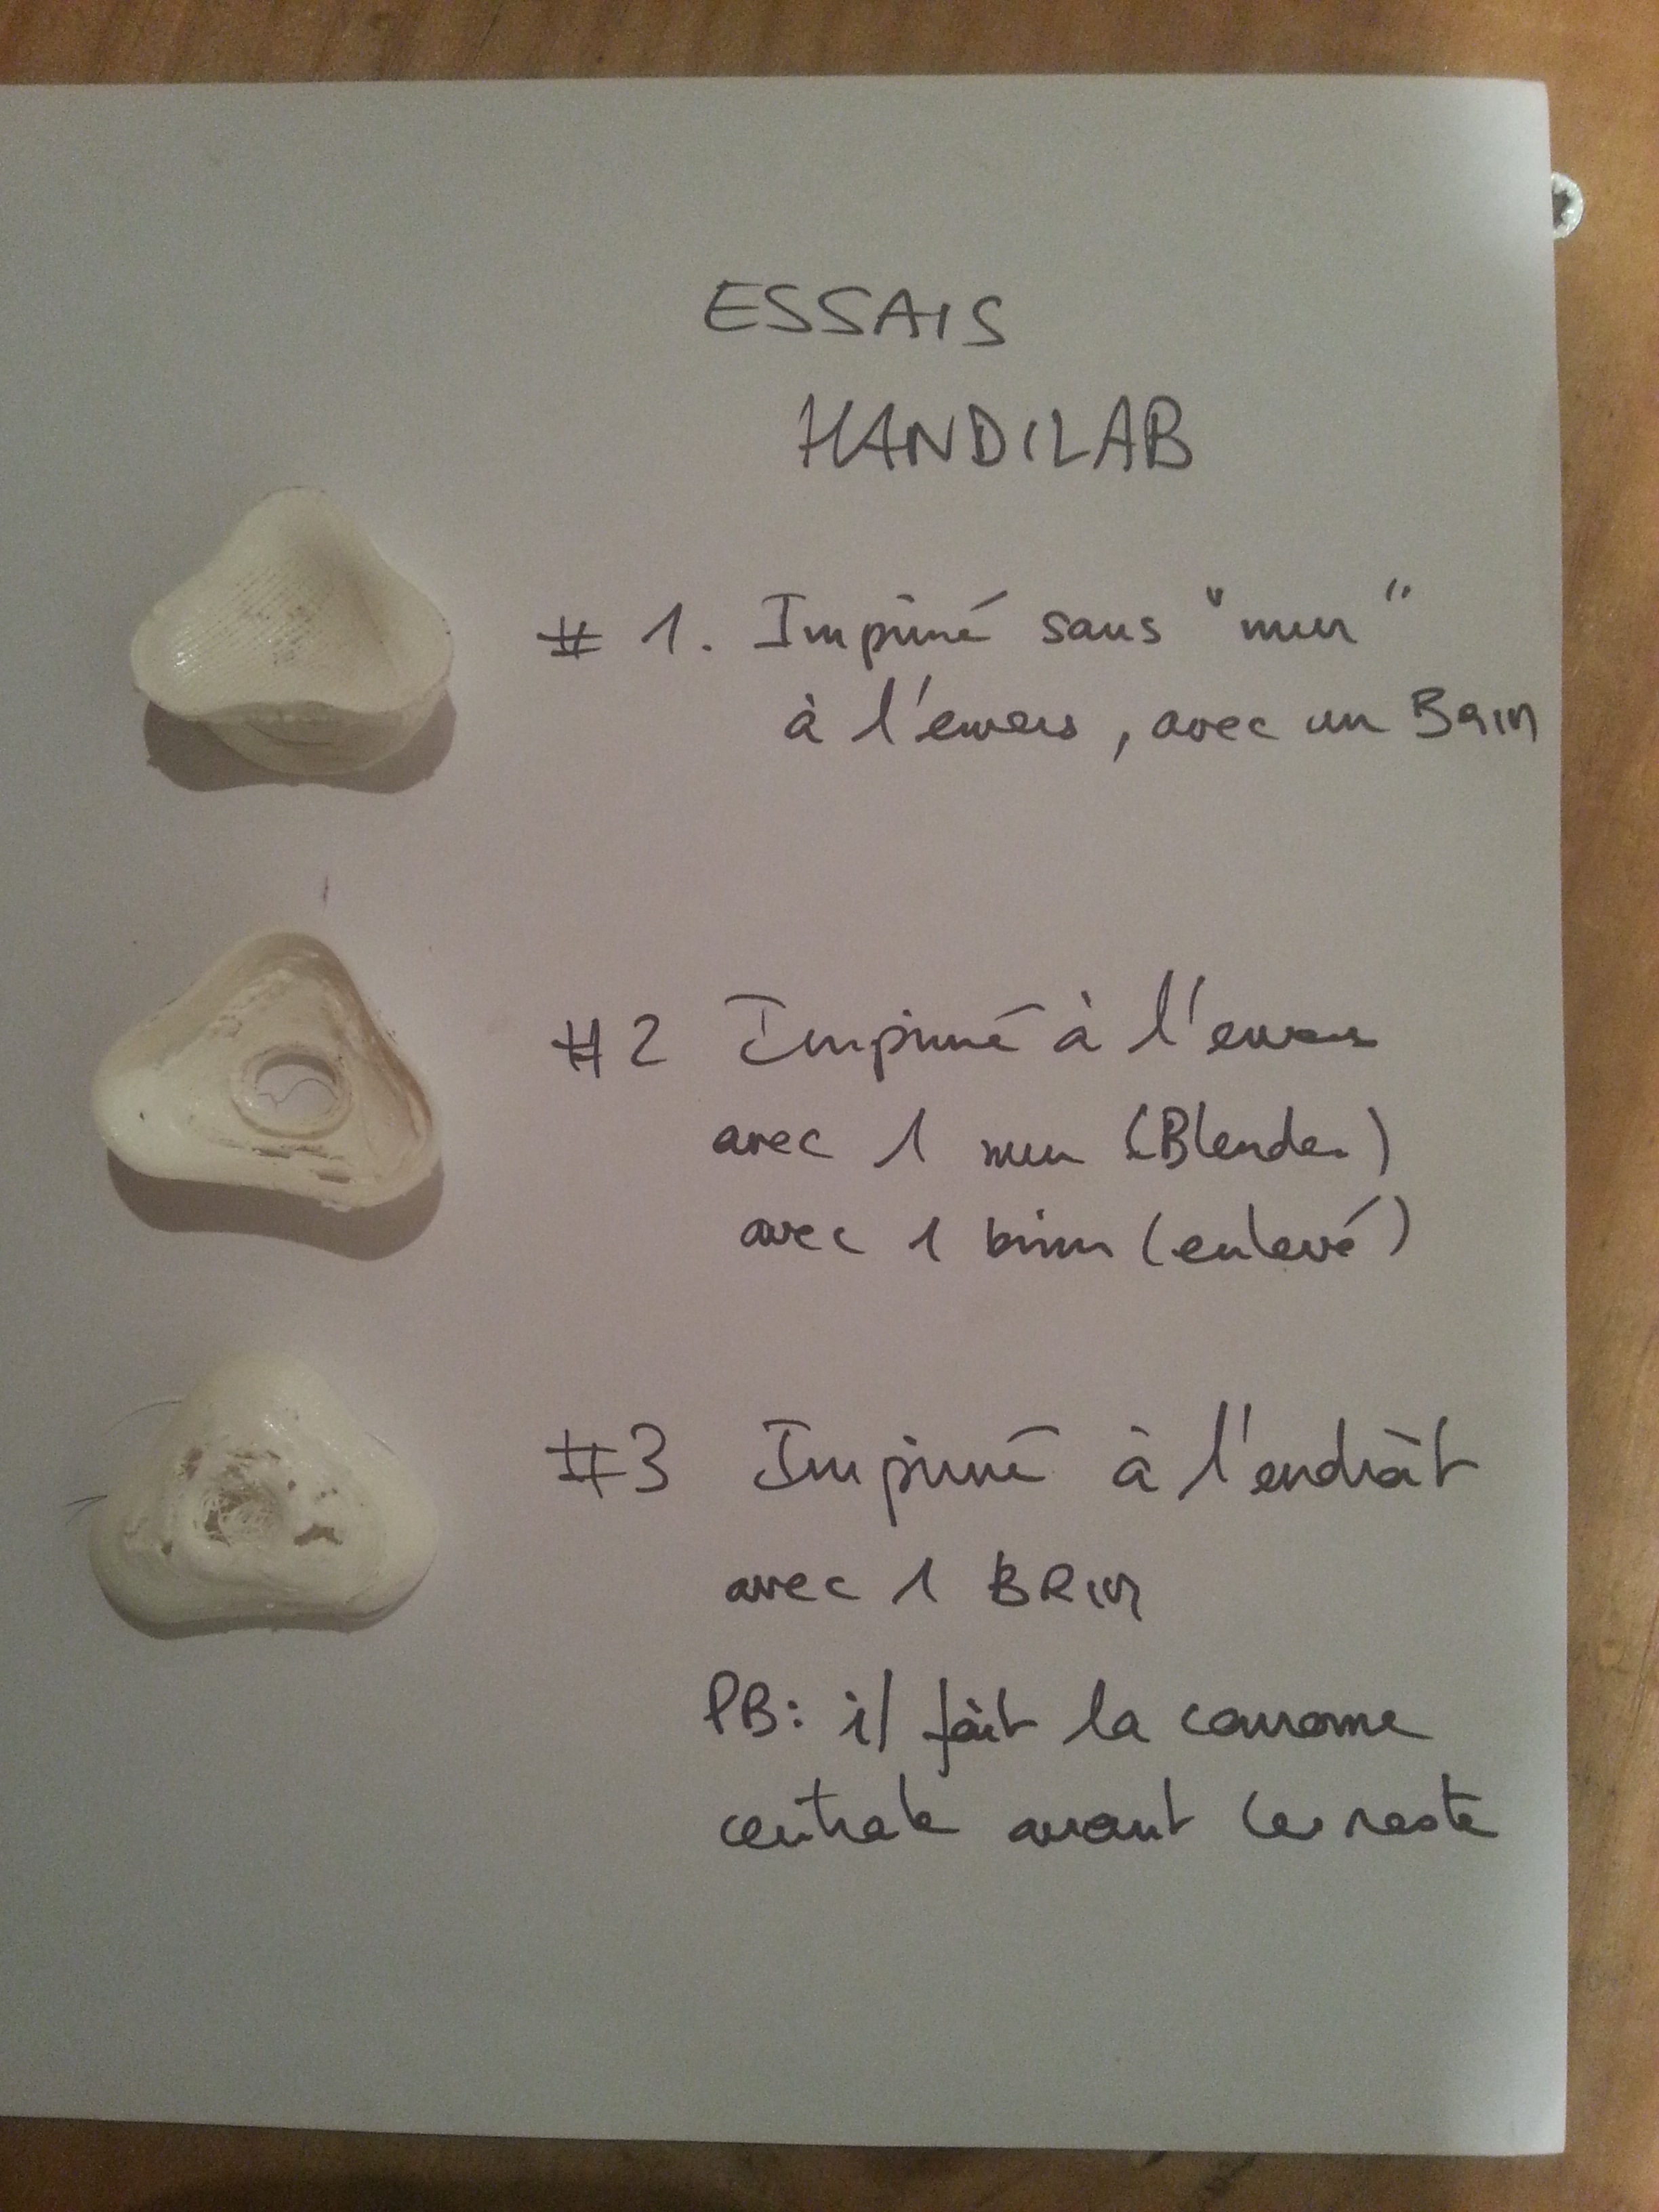 ESSAIS
HANDILAB
# 1. Imprimé sans "mur"
à l'envers, avec un Brim
#2 Imprimé à l'envers
avec 1 mur (Blender)
avec 1 brim (enlevé)
#3 Imprimé à l'endroit
avec 1 BRIM
PB: il fait la couronne
centrale avant le reste